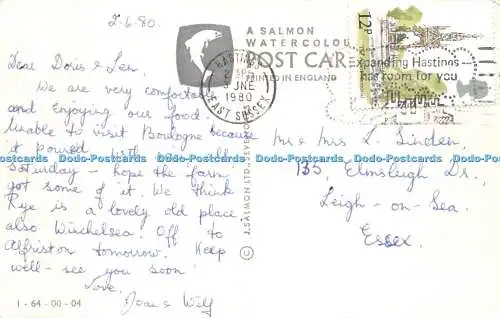 2.6.80.
Dear Doris & Len,
We are very comfortable
and enjoying our food.
Unable to visit Boulogne because
it poured with rain all
Saturday – hope the farm
got some of it. We think
Rye is a lovely old place
also Winchelsea. Off to
Alfriston tomorrow. Keep
well – see you soon
Love,
Joan & Wilf
1-64-00-04
A SALMON
WATERCOLOUR
POST CARD
PRINTED IN ENGLAND
© J. SALMON LTD., SEVENOAKS
HASTINGS
JNE
1980
EAST SUSSEX
Expanding Hastings
has room for you
12P
Mr & Mrs L. Linden
135 Elmsleigh Dr.,
Leigh-on-Sea.
Essex.
Dodo-Postcards Dodo-Postcards Dodo-Postcards Dodo-Postcards Dodo-Postcards Dodo-Postcards Dodo-Postcards